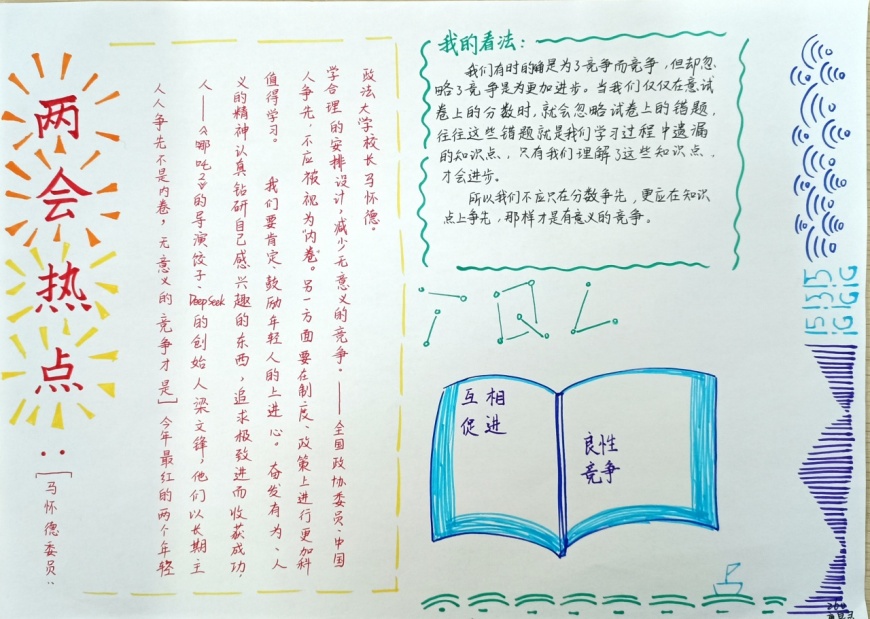 两会热点:
[马怀德委员:
人人争先不是内卷,无意义的竞争才是] 今年最红的两个年轻
人——《哪吒2》的导演饺子、DeepSeek的创始人梁文锋,他们以长期主
义的精神认真钻研自己感兴趣的东西,追求极致进而收获成功,
值得学习。 我们要肯定、鼓励年轻人的上进心。奋发有为、人
人争先,不应被视为“内卷”。另一方面要在制度、政策上进行更加科
学合理的安排设计,减少无意义的竞争。——全国政协委员、中国
政法大学校长马怀德。
我的看法:
我们有时的确是为了竞争而竞争,但却忽
略了竞争是为更加进步。当我们仅仅在意试
卷上的分数时,就会忽略试卷上的错题,
往往这些错题就是我们学习过程中遗漏
的知识点,只有我们理解了这些知识点,
才会进步。
所以我们不应只在分数争先,更应在知识
点上争先,那样才是有意义的竞争。
互相
促进
良性
竞争